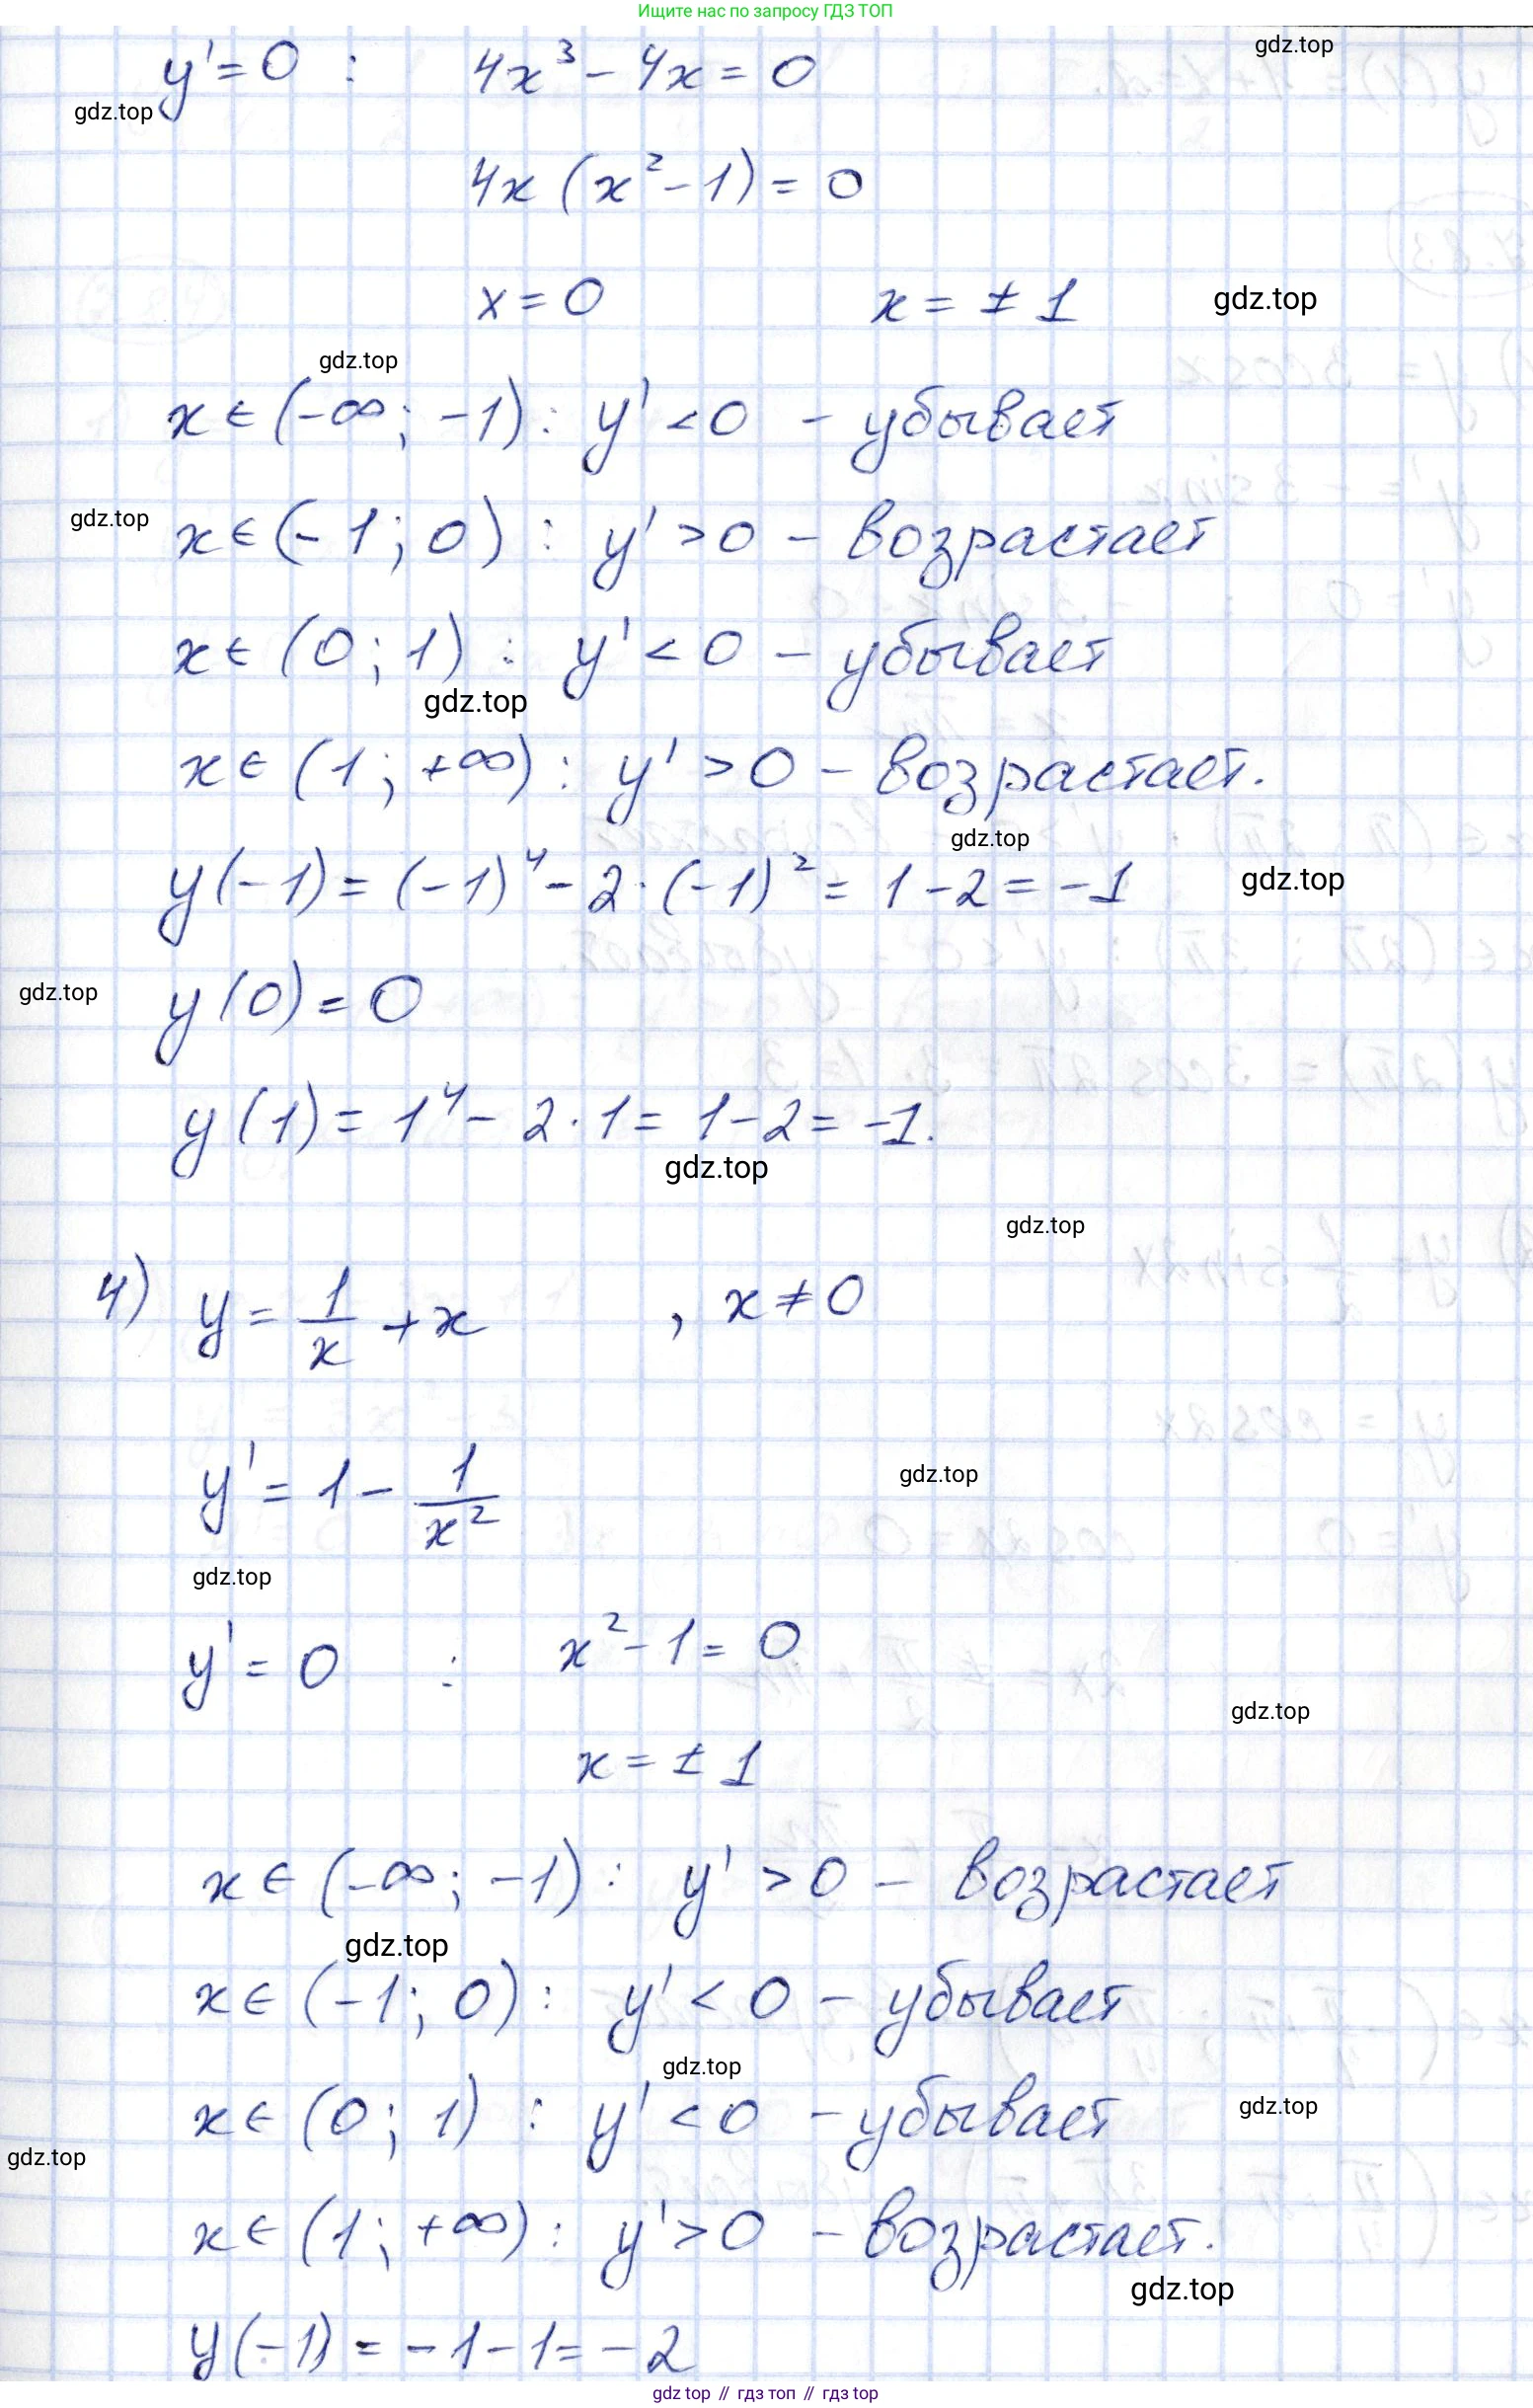 Ищите нас по запросу ГДЗ ТОП
gdz.top
y' = 0 : 4x³ - 4x = 0
gdz.top
4x (x² - 1) = 0
x = 0 x = ± 1 gdz.top
gdz.top
x ∈ (-∞; -1) : y' < 0 - убывает
gdz.top x ∈ (-1; 0) : y' > 0 - возрастает
x ∈ (0; 1) : y' < 0 - убывает
gdz.top
x ∈ (1; +∞) : y' > 0 - возрастает.
gdz.top
y(-1) = (-1)⁴ - 2 · (-1)² = 1 - 2 = -1 gdz.top
gdz.top y(0) = 0
y(1) = 1⁴ - 2 · 1 = 1 - 2 = -1.
gdz.top
gdz.top
4) y = 1/x + x , x ≠ 0
y' = 1 - 1/x²
gdz.top
gdz.top
y' = 0 : x² - 1 = 0
gdz.top
x = ± 1
x ∈ (-∞; -1) : y' > 0 - возрастает
gdz.top
x ∈ (-1; 0) : y' < 0 - убывает
gdz.top
x ∈ (0; 1) : y' < 0 - убывает gdz.top
gdz.top
x ∈ (1; +∞) : y' > 0 - возрастает.
gdz.top
y(-1) = -1 - 1 = -2
gdz top // гдз топ // гдз top